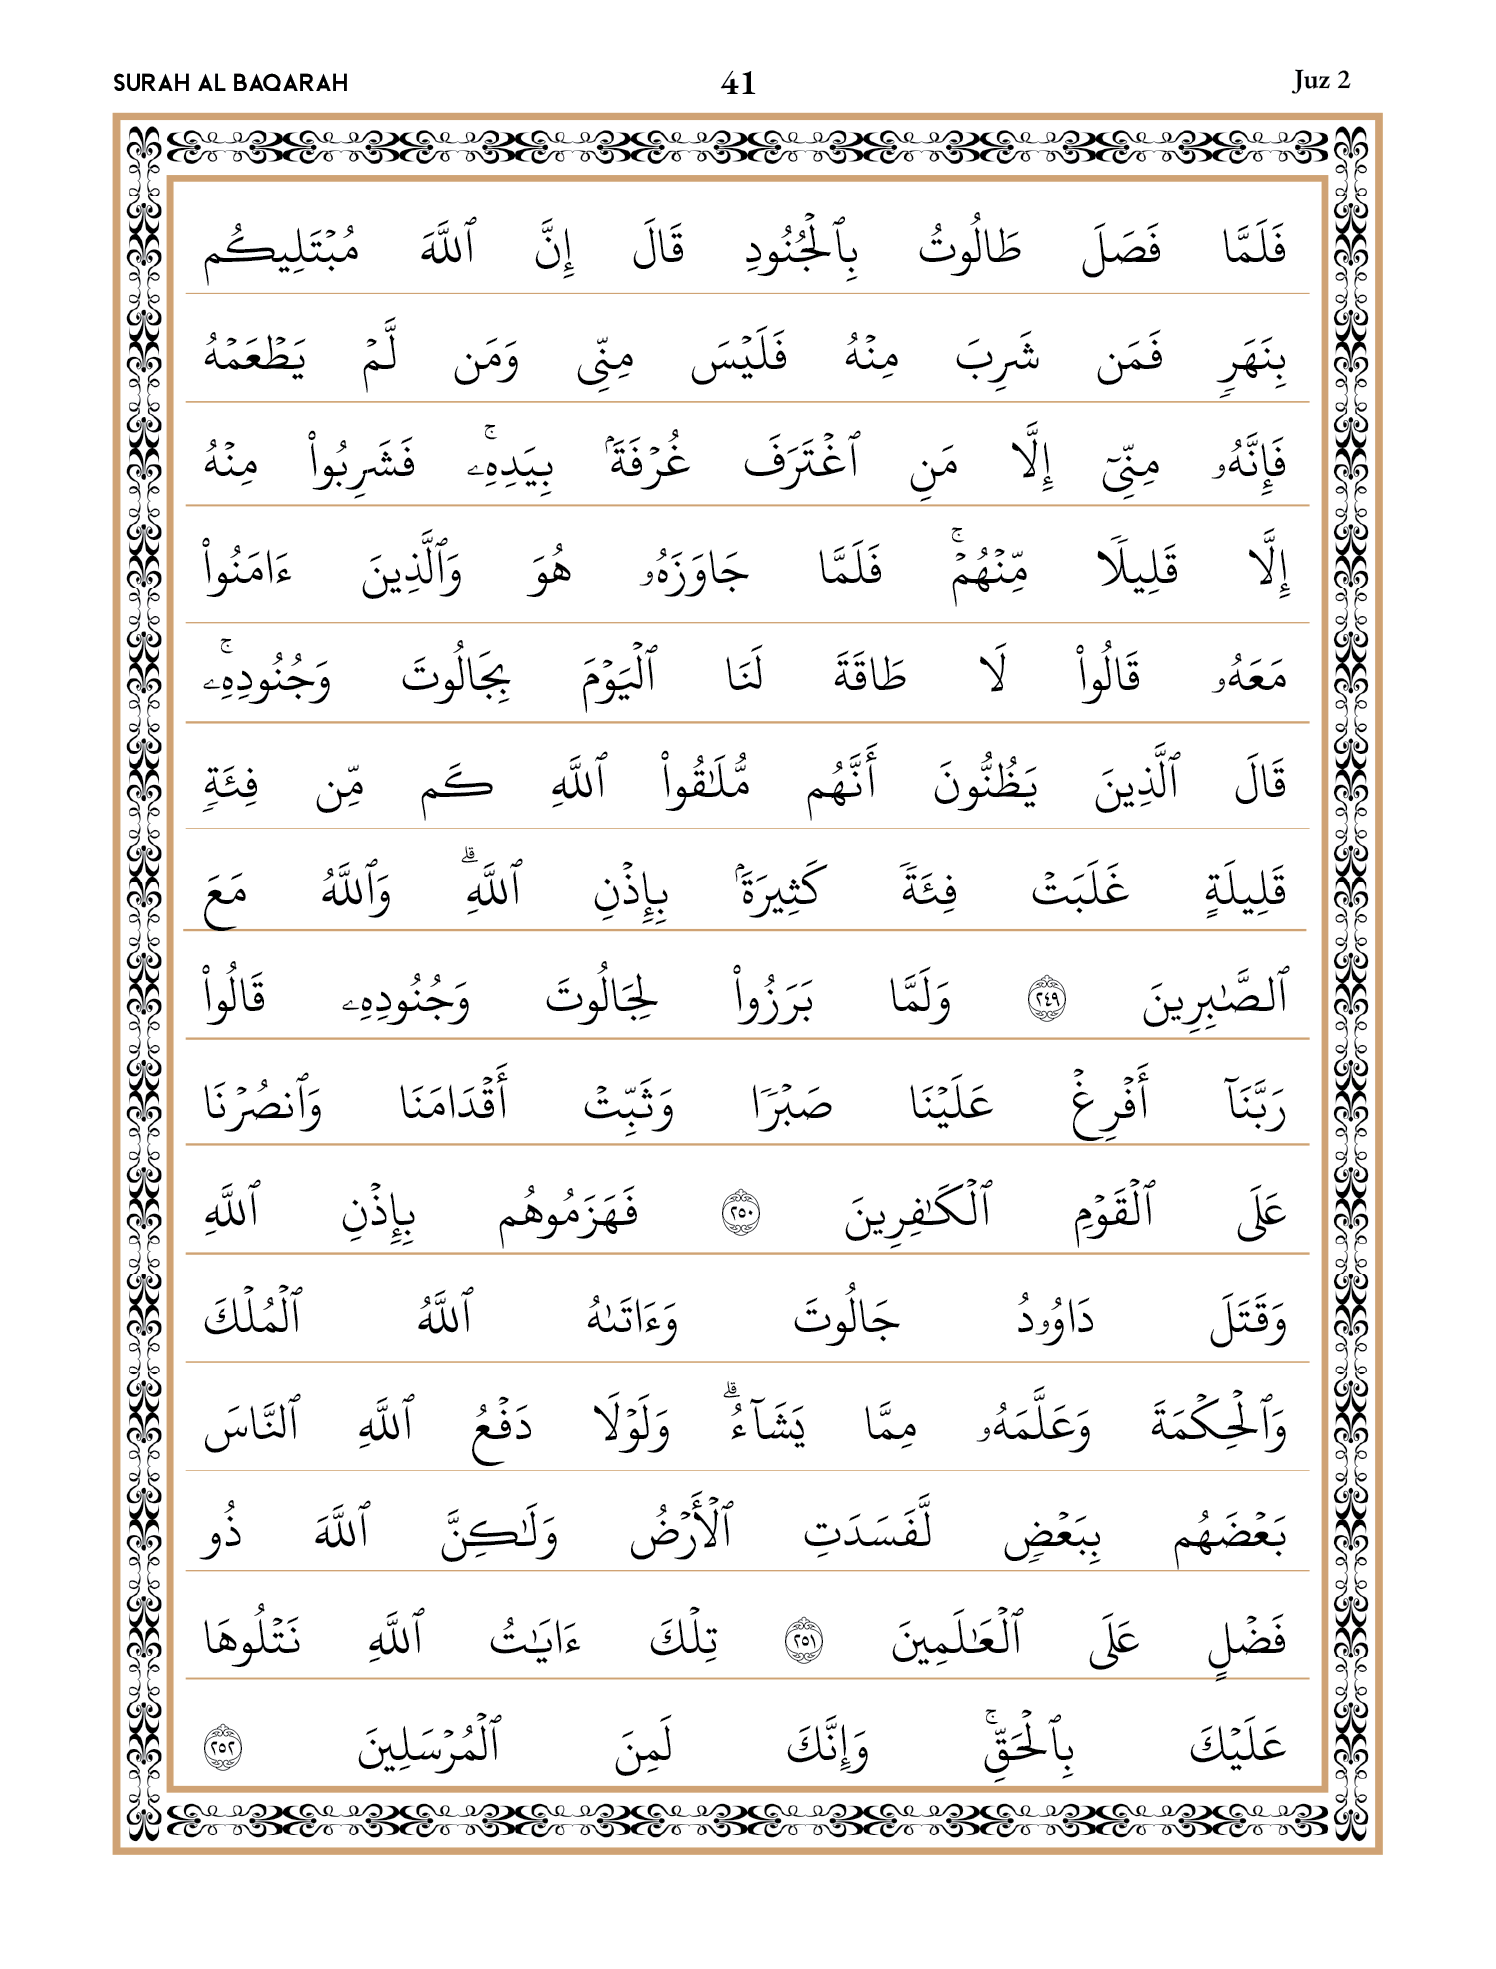 SURAH AL BAQARAH 41 Juz 2
فَلَمَّا فَصَلَ طَالُوتُ بِٱلْجُنُودِ قَالَ إِنَّ ٱللَّهَ مُبْتَلِيكُم
بِنَهَرٍ فَمَن شَرِبَ مِنْهُ فَلَيْسَ مِنِّى وَمَن لَّمْ يَطْعَمْهُ
فَإِنَّهُۥ مِنِّىٓ إِلَّا مَنِ ٱغْتَرَفَ غُرْفَةًۢ بِيَدِهِۦۚ فَشَرِبُوا۟ مِنْهُ
إِلَّا قَلِيلًا مِّنْهُمْۚ فَلَمَّا جَاوَزَهُۥ هُوَ وَٱلَّذِينَ ءَامَنُوا۟
مَعَهُۥ قَالُوا۟ لَا طَاقَةَ لَنَا ٱلْيَوْمَ بِجَالُوتَ وَجُنُودِهِۦۚ
قَالَ ٱلَّذِينَ يَظُنُّونَ أَنَّهُم مُّلَـٰقُوا۟ ٱللَّهِ كَم مِّن فِئَةٍ
قَلِيلَةٍ غَلَبَتْ فِئَةً كَثِيرَةًۢ بِإِذْنِ ٱللَّهِۗ وَٱللَّهُ مَعَ
ٱلصَّـٰبِرِينَ ٢٤٩ وَلَمَّا بَرَزُوا۟ لِجَالُوتَ وَجُنُودِهِۦ قَالُوا۟
رَبَّنَآ أَفْرِغْ عَلَيْنَا صَبْرًا وَثَبِّتْ أَقْدَامَنَا وَٱنصُرْنَا
عَلَى ٱلْقَوْمِ ٱلْكَـٰفِرِينَ ٢٥٠ فَهَزَمُوهُم بِإِذْنِ ٱللَّهِ
وَقَتَلَ دَاوُۥدُ جَالُوتَ وَءَاتَىٰهُ ٱللَّهُ ٱلْمُلْكَ
وَٱلْحِكْمَةَ وَعَلَّمَهُۥ مِمَّا يَشَآءُۗ وَلَوْلَا دَفْعُ ٱللَّهِ ٱلنَّاسَ
بَعْضَهُم بِبَعْضٍ لَّفَسَدَتِ ٱلْأَرْضُ وَلَـٰكِنَّ ٱللَّهَ ذُو
فَضْلٍ عَلَى ٱلْعَـٰلَمِينَ ٢٥١ تِلْكَ ءَايَـٰتُ ٱللَّهِ نَتْلُوهَا
عَلَيْكَ بِٱلْحَقِّۚ وَإِنَّكَ لَمِنَ ٱلْمُرْسَلِينَ ٢٥٢